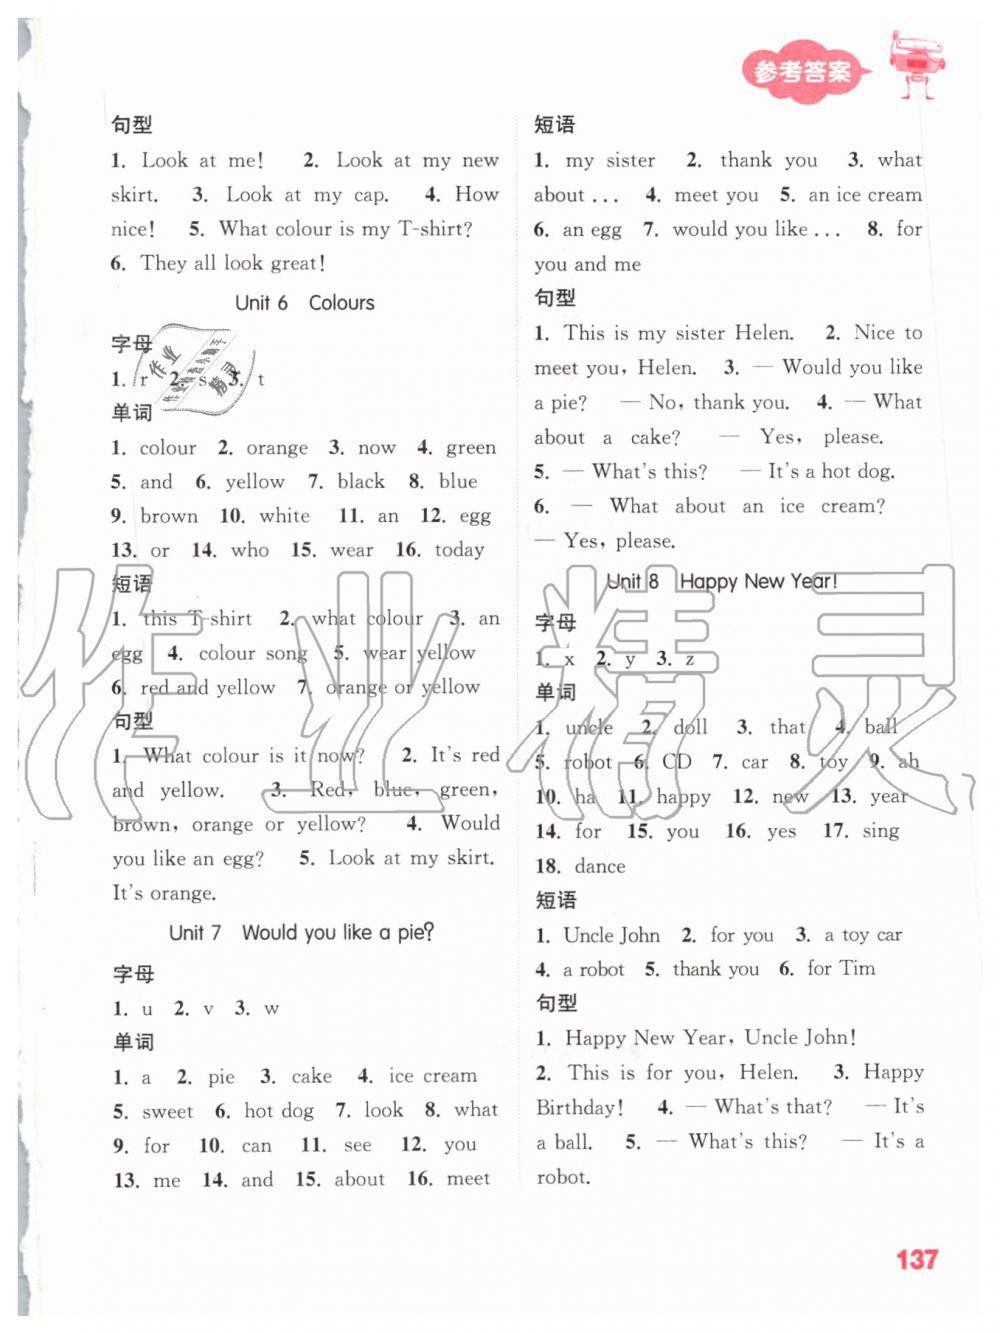 参考答案
句型
1. Look at me! 2. Look at my new
skirt. 3. Look at my cap. 4. How
nice! 5. What colour is my T-shirt?
6. They all look great!
Unit 6 Colours
字母
1. r 2. s 3. t
单词
1. colour 2. orange 3. now 4. green
5. and 6. yellow 7. black 8. blue
9. brown 10. white 11. an 12. egg
13. or 14. who 15. wear 16. today
短语
1. this T-shirt 2. what colour 3. an
egg 4. colour song 5. wear yellow
6. red and yellow 7. orange or yellow
句型
1. What colour is it now? 2. It's red
and yellow. 3. Red, blue, green,
brown, orange or yellow? 4. Would
you like an egg? 5. Look at my skirt.
It's orange.
Unit 7 Would you like a pie?
字母
1. u 2. v 3. w
单词
1. a 2. pie 3. cake 4. ice cream
5. sweet 6. hot dog 7. look 8. what
9. for 10. can 11. see 12. you
13. me 14. and 15. about 16. meet
短语
1. my sister 2. thank you 3. what
about ... 4. meet you 5. an ice cream
6. an egg 7. would you like ... 8. for
you and me
句型
1. This is my sister Helen. 2. Nice to
meet you, Helen. 3. — Would you like
a pie? — No, thank you. 4. — What
about a cake? — Yes, please.
5. — What's this? — It's a hot dog.
6. — What about an ice cream?
— Yes, please.
Unit 8 Happy New Year!
字母
1. x 2. y 3. z
单词
1. uncle 2. doll 3. that 4. ball
5. robot 6. CD 7. car 8. toy 9. ah
10. ha 11. happy 12. new 13. year
14. for 15. you 16. yes 17. sing
18. dance
短语
1. Uncle John 2. for you 3. a toy car
4. a robot 5. thank you 6. for Tim
句型
1. Happy New Year, Uncle John!
2. This is for you, Helen. 3. Happy
Birthday! 4. — What's that? — It's
a ball. 5. — What's this? — It's a
robot.
137
作业精灵
作业
精灵